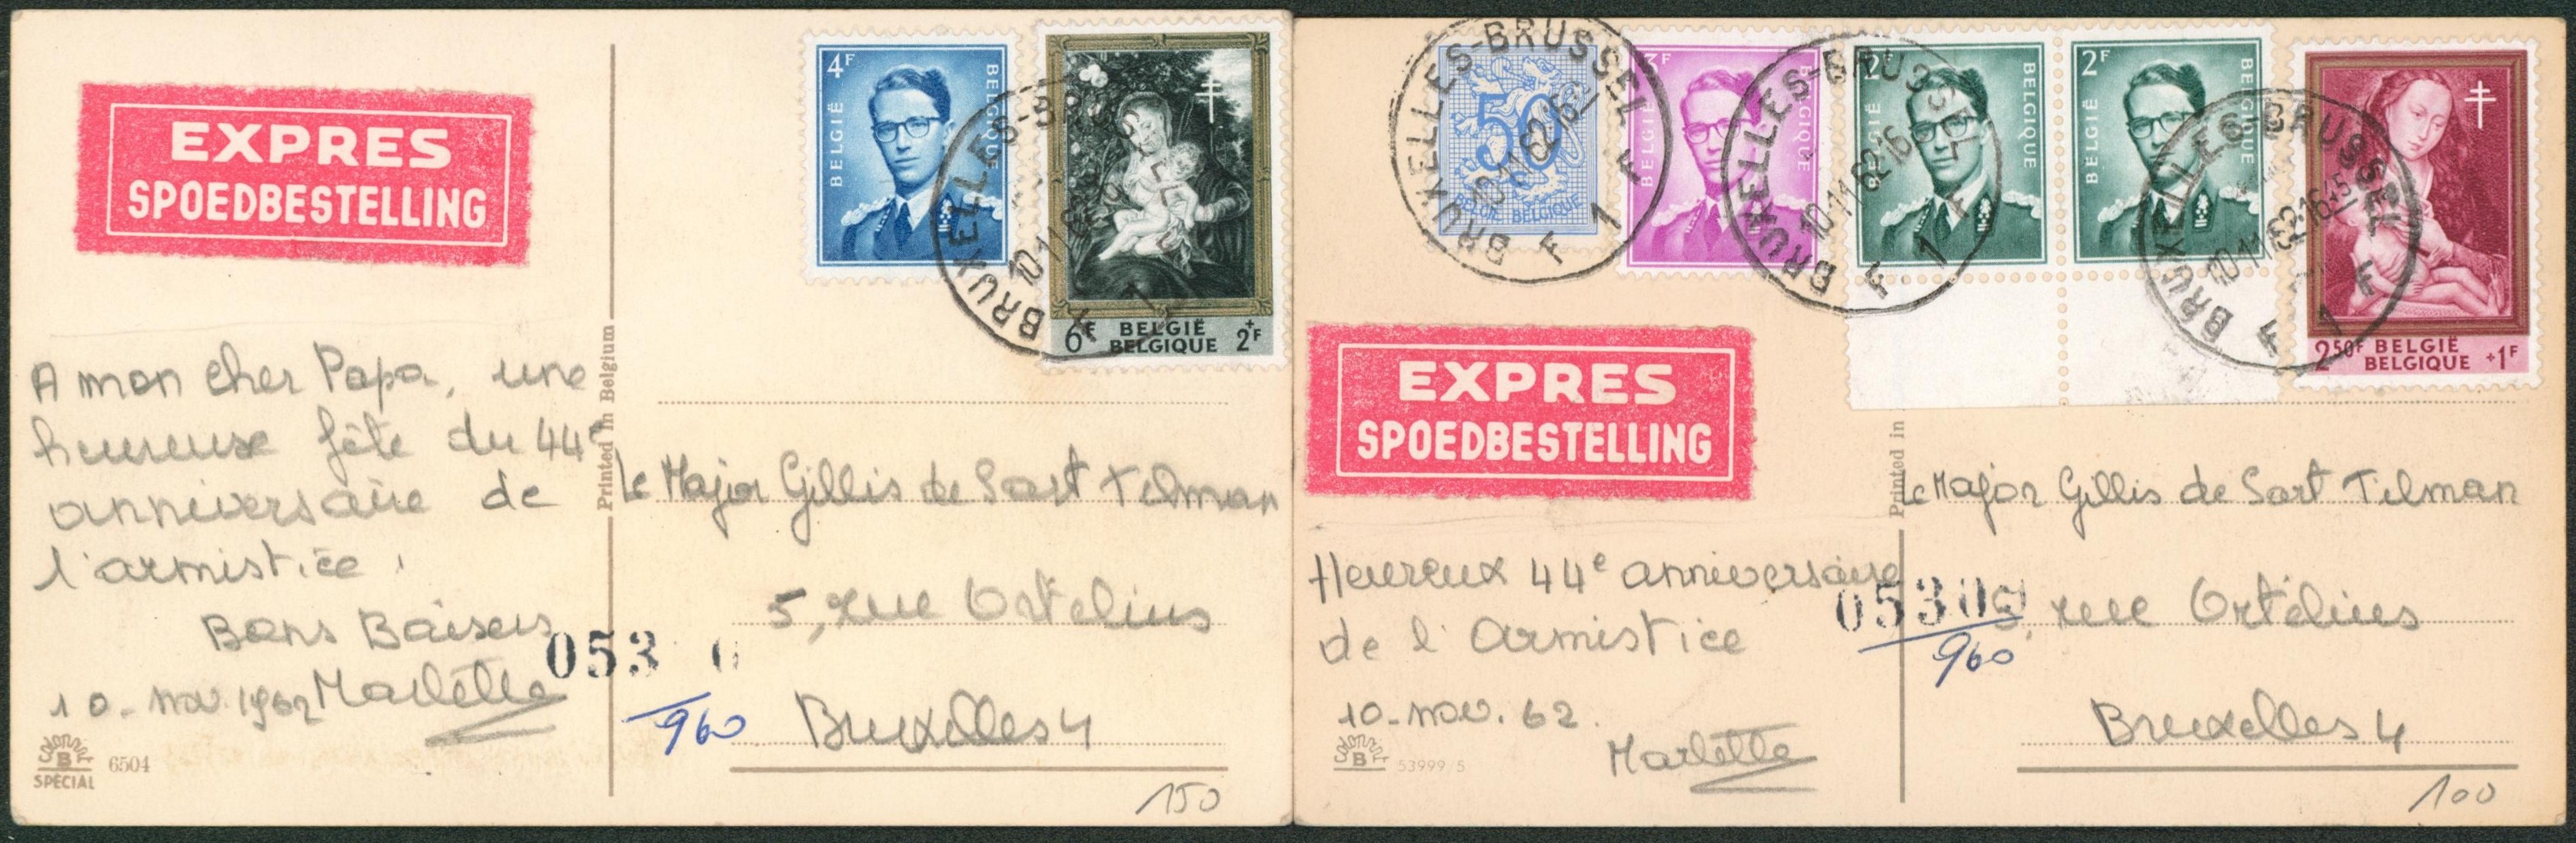 EXPRES
SPOEDBESTELLING
4F
BELGIË
BELGIQUE
6F BELGIË BELGIQUE +2F
BRUXELLES-BRUSSEL
F 1 F
A mon cher Papa, une
heureuse fête du 44e
anniversaire de
l'armistice,
Bons Baisers
Marlette
10-nov. 1962
053
960
SPECIAL
6504
Printed in Belgium
Le Major Gillis de Sart Tilman
5, rue Ortélius
Bruxelles 4
150
BRUXELLES-BRUSSEL
10-11-62-16
F 1 F
50
BELGIE BELGIQUE
3F
BELGIQUE
BRUXELLES-BRUSSEL
10-11-62-16
F 1 F
2F
BELGIË
BELGIQUE
2F
BELGIË
BELGIQUE
BRUXELLES-BRUSSEL
10-11-62-16
F 1 F
2 50F BELGIË +1F
BELGIQUE
EXPRES
SPOEDBESTELLING
Heureux 44e anniversaire
de l'Armistice
10-nov. 62.
Marlette
0530
960
B
53999/5
Printed in
Le Major Gillis de Sart Tilman
5, rue Ortélius
Bruxelles 4
100